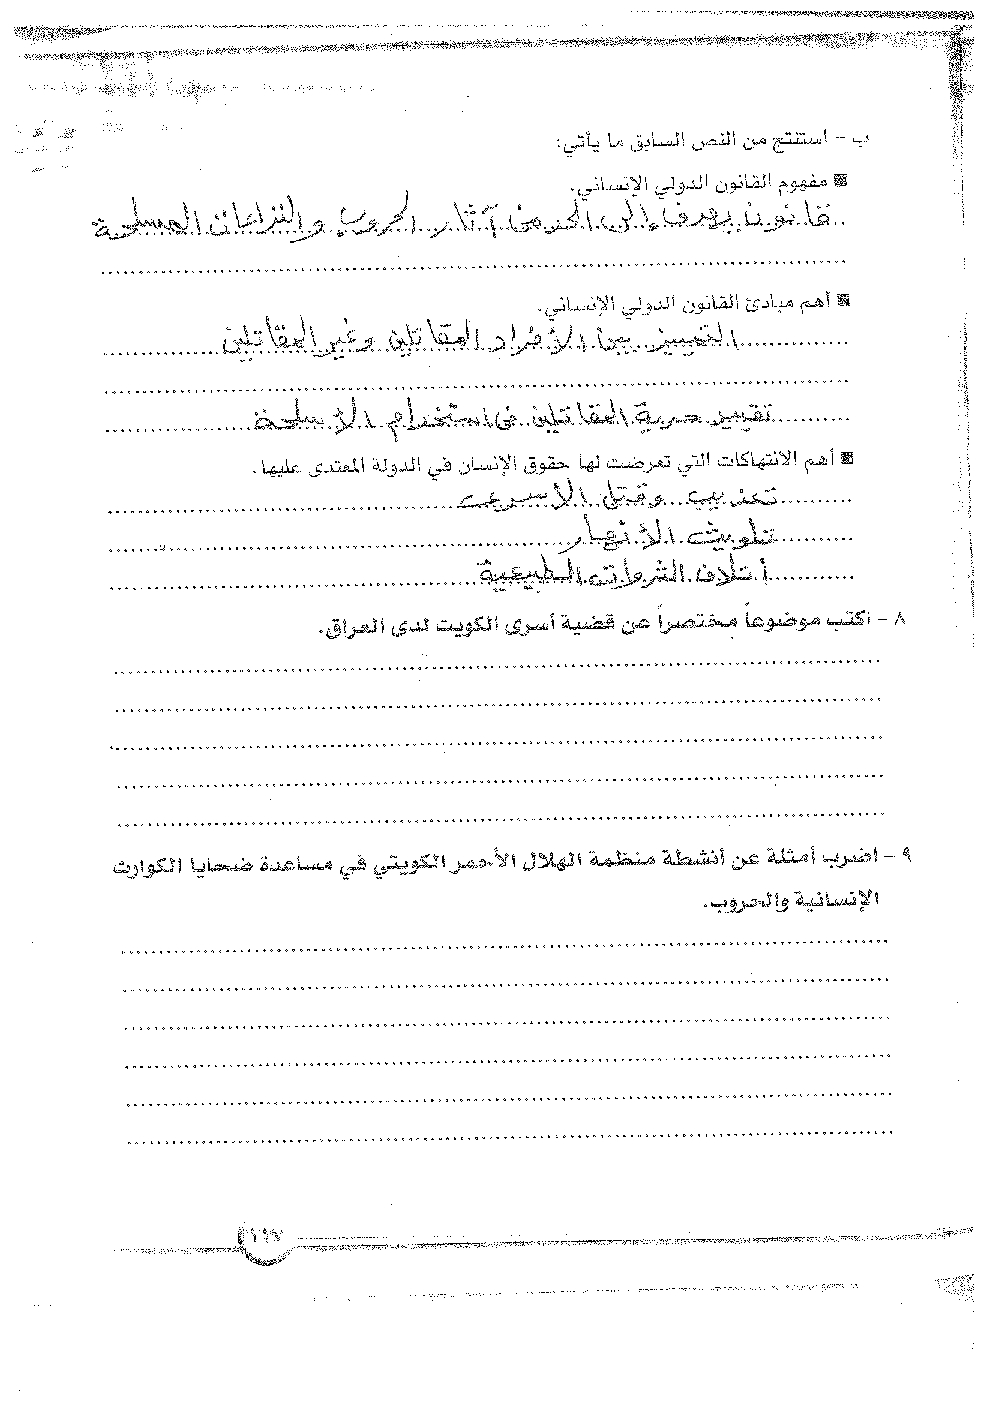 ب - استنتج من النص السابق ما يأتي:
مفهوم القانون الدولي الإنساني.
قانون يهدف إلى الحد من آثار الحروب والنزاعات المسلحة
أهم مبادئ القانون الدولي الإنساني.
التمييز بين الأفراد المقاتلين وغير المقاتلين
تقييد حرية المقاتلين في استخدام الأسلحة
أهم الانتهاكات التي تعرضت لها حقوق الإنسان في الدولة المعتدى عليها.
تعذيب وقتل الاسرى
تلويث الأنهار
أتلاف الثروات الطبيعية
٨ - اكتب موضوعاً مختصراً عن قضية أسرى الكويت لدى العراق.
٩ - اضرب أمثلة عن أنشطة منظمة الهلال الأحمر الكويتي في مساعدة ضحايا الكوارث
الإنسانية والحروب.